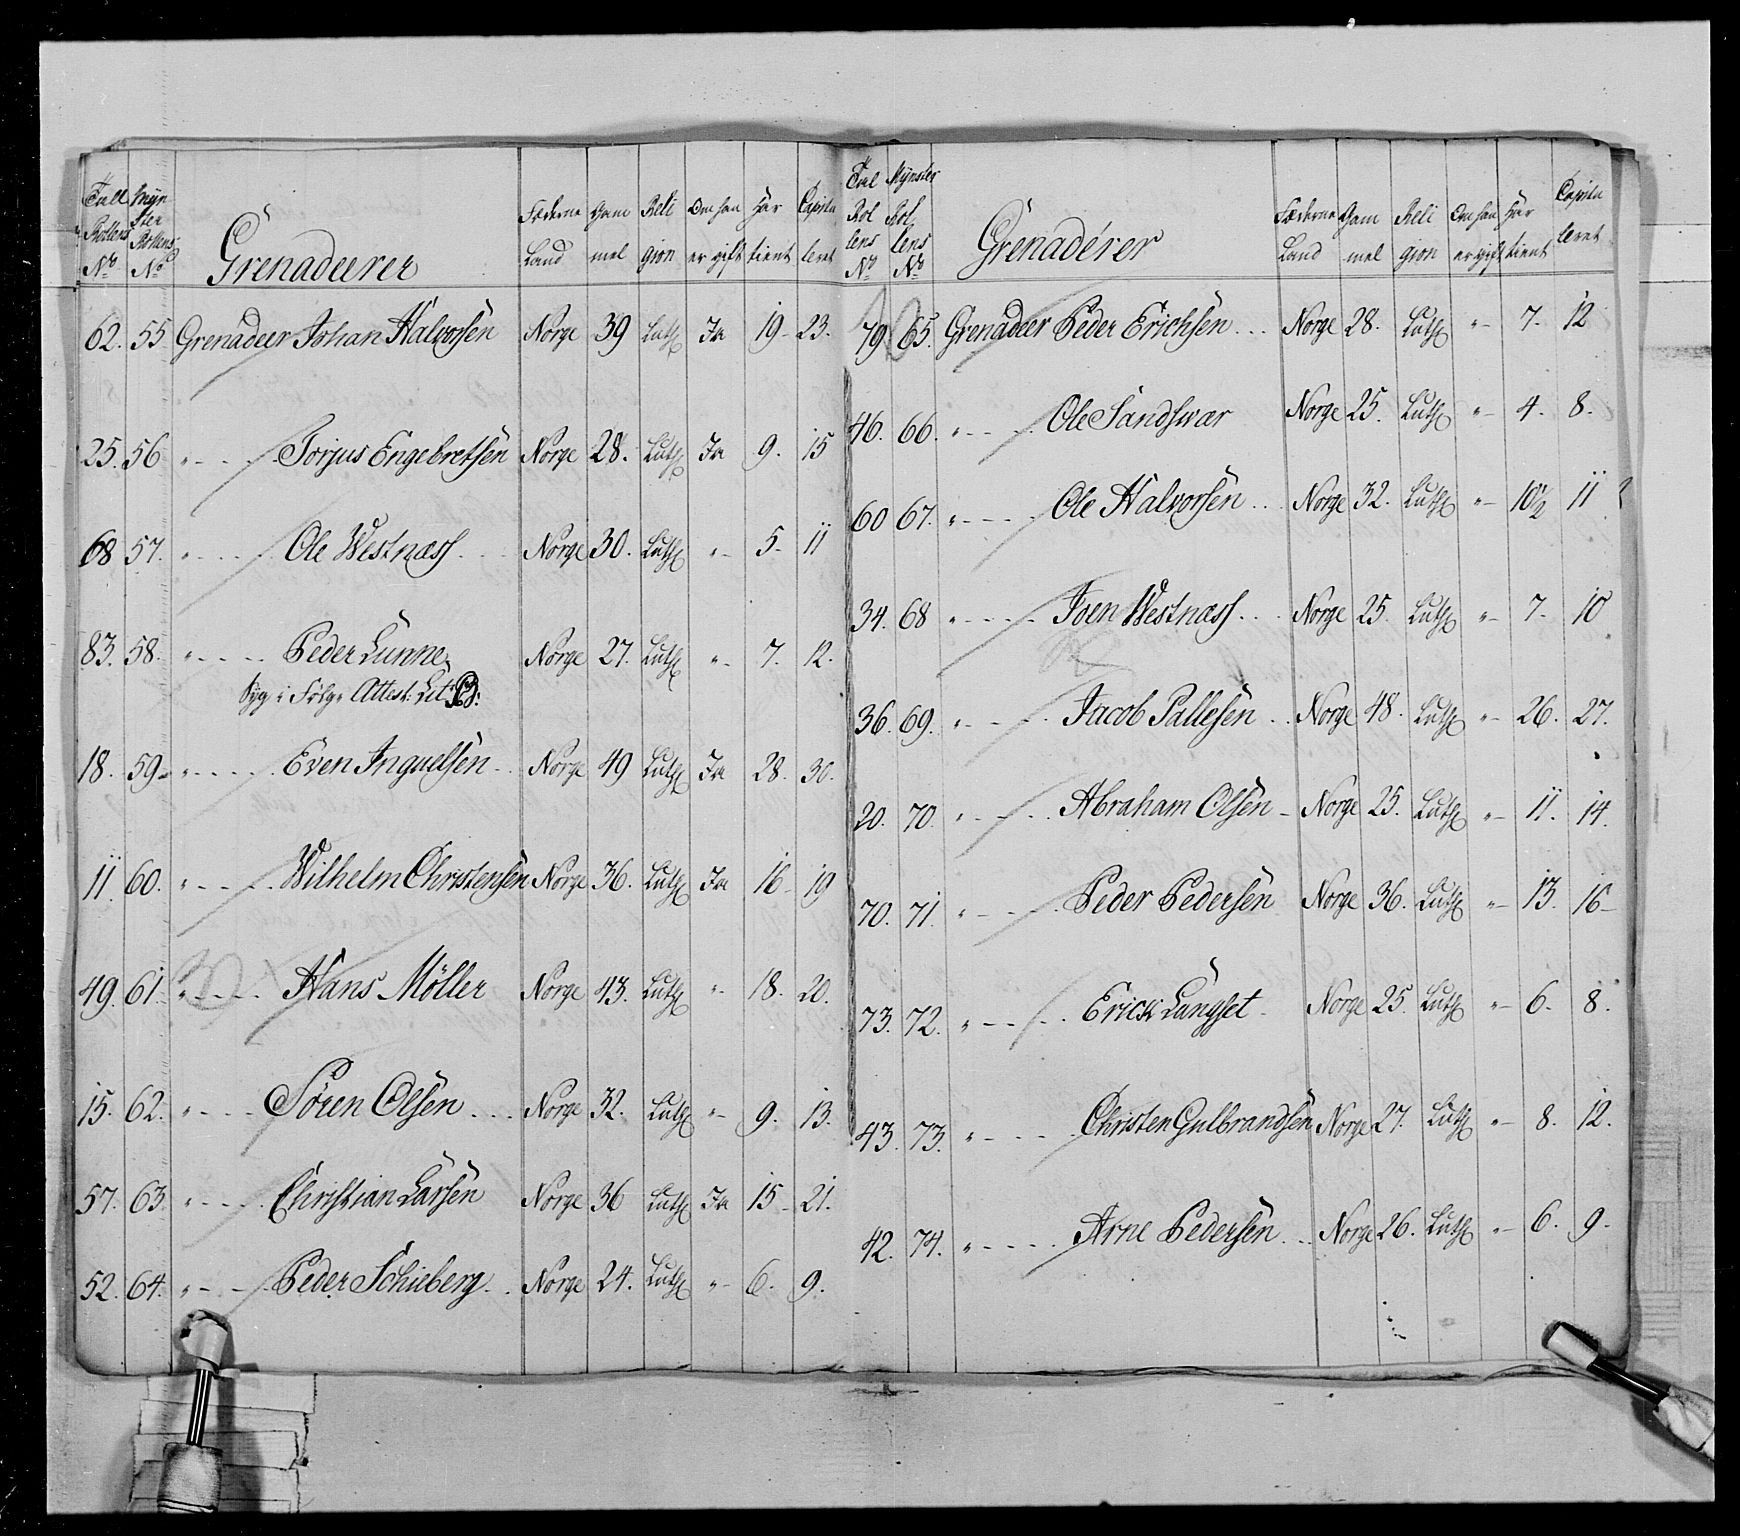 Tall Rollens No | Mynster Rollens No | Grenadeerer | Fæderne Land | Gammel | Religion | Om han er gift | Har tient | Capituleret
62. 55 Grenadeer Johan Halvorsen Norge 39 Luthr Ja 19- 23.
25. 56 " - - - Torjus Engebretsen Norge 28. Luthr Ja 9. 15
68 57. " - - - Ole Westnæss Norge 30. Luthr "- 5- 11
83. 58. " - - - Peder Lunne Norge 27. Luthr "- 7. 12.
Syg i Følge Attest: Lit: B:
18. 59- " - - - Even Inguelsen Norge 49 Luthr Ja 28. 30.
11 60. " - - - Wilhelm Christensen Norge 36. Luthr Ja 16- 19
49. 61. " - - - Hans Möller Norge 43. Luthr "- 18. 20.
15. 62. " - - - Sören Olsen Norge 32. Luthr "- 9. 13.
57. 63 " - - - Christian Larsen Norge 36 Luthr Ja 15- 21.
52. 64. " - - - Peder Schieberg Norge 24. Luthr "- 6. 9.
Tal Rollens No | Mynster Rollens No | Grenadérer | Fæderne Land | Gammel | Religion | Om han er gift | Har tient | Capituleret
79 65. Grenadeer Peder Erichsen Norge 28. Luthr "- 7. 12
46. 66. " - - - Ole Sandswær Norge 25. Luthr "- 4. 8.
60 67. " - - - Ole Halvorsen Norge 32. Luthr "- 10 1/2 11
34. 68 " - - - Iven Westnæss Norge 25. Luthr "- 7- 10
36. 69. " - - - Jacob Pallesen Norge 48. Luthr "- 26. 27.
20. 70. " - - - Abraham Olsen - Norge 25. Luthr "- 11. 14.
70. 71. " - - - Peder Pedersen Norge 36. Luthr "- 13. 16-
73. 72. " - - - Erick Langset Norge 25. Luthr "- 6. 8.
43. 73. " - - - Christen Gulbrandsen Norge 27. Luthr "- 8. 12.
42. 74. " - - - Arne Pedersen Norge 26. Luthr "- 6. 9-